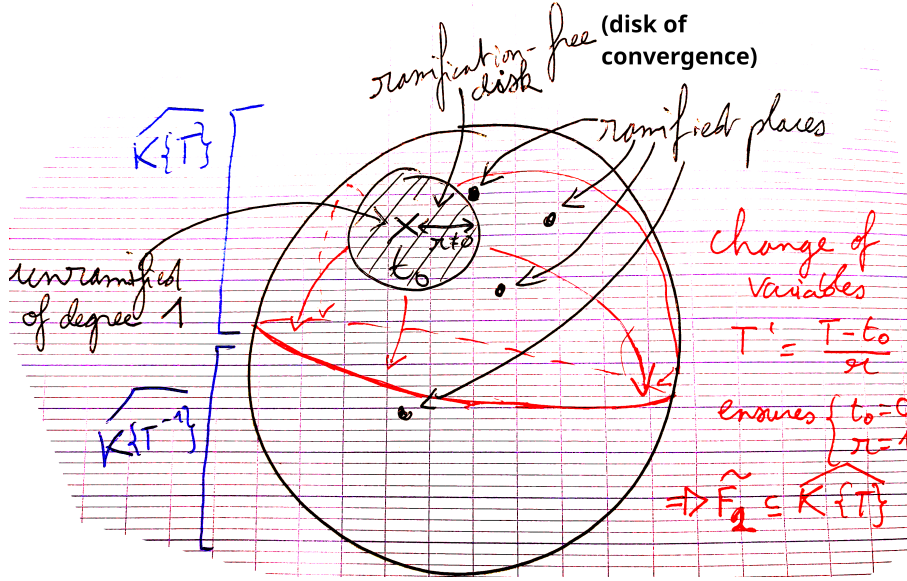 ramification-free
disk
(disk of
convergence)
ramified places
K{T}
r≠0
t₀
unramified
of degree 1
K{T⁻¹}
change of
variables
T' = (T-t₀)/r
ensures { t₀=0
r=1
⇒ F̃₂ ⊆ K{T}